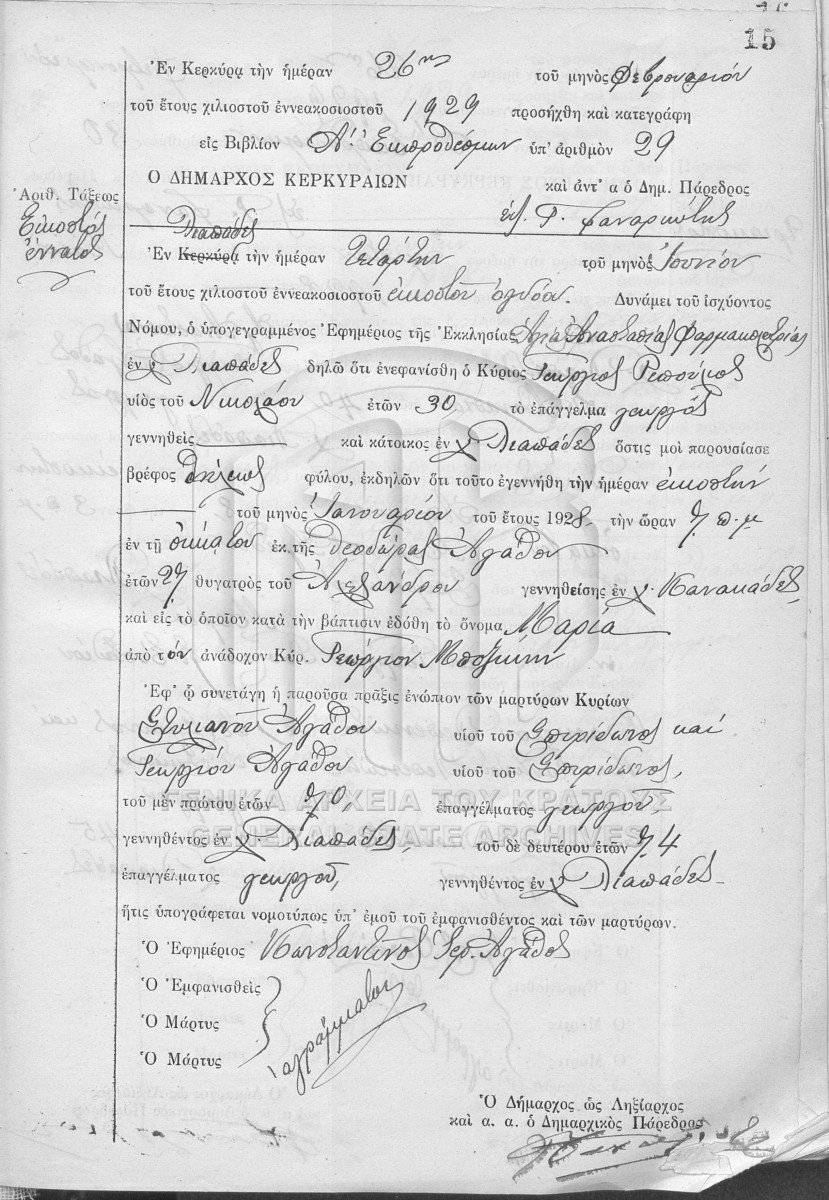 15
Ἐν Κερκύρᾳ τὴν ἡμέραν 26ην τοῦ μηνὸς Φεβρουαρίου
τοῦ ἔτους χιλιοστοῦ ἐννεακοσιοστοῦ 1929 προσήχθη καὶ κατεγράφη
εἰς Βιβλίον Α΄. Ἐκπροθέσμων ὑπ' ἀριθμὸν 29
Ο ΔΗΜΑΡΧΟΣ ΚΕΡΚΥΡΑΙΩΝ καὶ ἀντ' α ὁ Δημ. Πάρεδρος
Ἀριθ. Τάξεως
Εἰκοστός
ἔννατος
Λιαπάδες
Ἐν Κερκύρᾳ τὴν ἡμέραν Τετάρτην τοῦ μηνὸς Ἰουνίου
τοῦ ἔτους χιλιοστοῦ ἐννεακοσιοστοῦ εἰκοστοῦ ὀγδόου. Δυνάμει τοῦ ἰσχύοντος
Νόμου, ὁ ὑπογεγραμμένος Ἐφημέριος τῆς Ἐκκλησίας Ἁγίας Ἀναστασίας Φαρμακολυτρίας
ἐν χ Λιαπάδες δηλῶ ὅτι ἐνεφανίσθη ὁ Κύριος Γεώργιος
υἱὸς τοῦ Νικολάου ἐτῶν 30 τὸ ἐπάγγελμα γεωργός
γεννηθεὶς καὶ κάτοικος ἐν χ Λιαπάδες ὅστις μοὶ παρουσίασε
βρέφος θήλεως φύλου, ἐκδηλῶν ὅτι τοῦτο ἐγεννήθη τὴν ἡμέραν εἰκοστήν
τοῦ μηνὸς Ἰανουαρίου τοῦ ἔτους 1928 τὴν ὥραν 7 π.μ
ἐν τῇ οἰκίᾳ του ἐκ τῆς Θεοδώρας Ἀγάθου
ἐτῶν 27 θυγατρὸς τοῦ Ἀλεξάνδρου γεννηθείσης ἐν χ. Κανακάδες
καὶ εἰς τὸ ὁποῖον κατὰ τὴν βάπτισιν ἐδόθη τὸ ὄνομα Μαρία
ἀπὸ τὸν ἀνάδοχον Κύρ. Γεώργιον
Ἐφ' ᾧ συνετάγη ἡ παροῦσα πρᾶξις ἐνώπιον τῶν μαρτύρων Κυρίων
Στυλιανοῦ Ἀγάθου υἱοῦ τοῦ Σπυρίδωνος καί
Γεωργίου Ἀγάθου υἱοῦ τοῦ Σπυρίδωνος,
τοῦ μὲν πρώτου ἐτῶν 70, ἐπαγγέλματος γεωργοῦ,
ΓΕΝΙΚΑ ΑΡΧΕΙΑ ΤΟΥ ΚΡΑΤΟΥΣ
GENERAL STATE ARCHIVES
γεννηθέντος ἐν χ. Λιαπάδες, τοῦ δὲ δευτέρου ἐτῶν 74
ἐπαγγέλματος γεωργοῦ, γεννηθέντος ἐν χ Λιαπάδες
ἥτις ὑπογράφεται νομοτύπως ὑπ' ἐμοῦ τοῦ ἐμφανισθέντος καὶ τῶν μαρτύρων.
Ὁ Ἐφημέριος Κωνσταντῖνος Ἱερ. Ἀγάθος
Ὁ Ἐμφανισθεὶς
Ὁ Μάρτυς ἀγράμματοι
Ὁ Μάρτυς
Ὁ Δήμαρχος ὡς Ληξίαρχος
καὶ α. α. ὁ Δημαρχικὸς Πάρεδρος